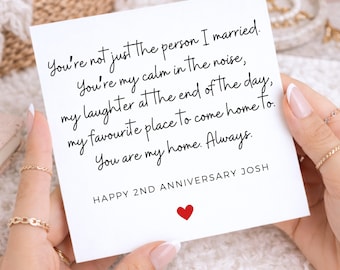 You're not just the person I married.
You're my calm in the noise,
my laughter at the end of the day,
my favourite place to come home to.
You are my home. Always.
HAPPY 2ND ANNIVERSARY JOSH